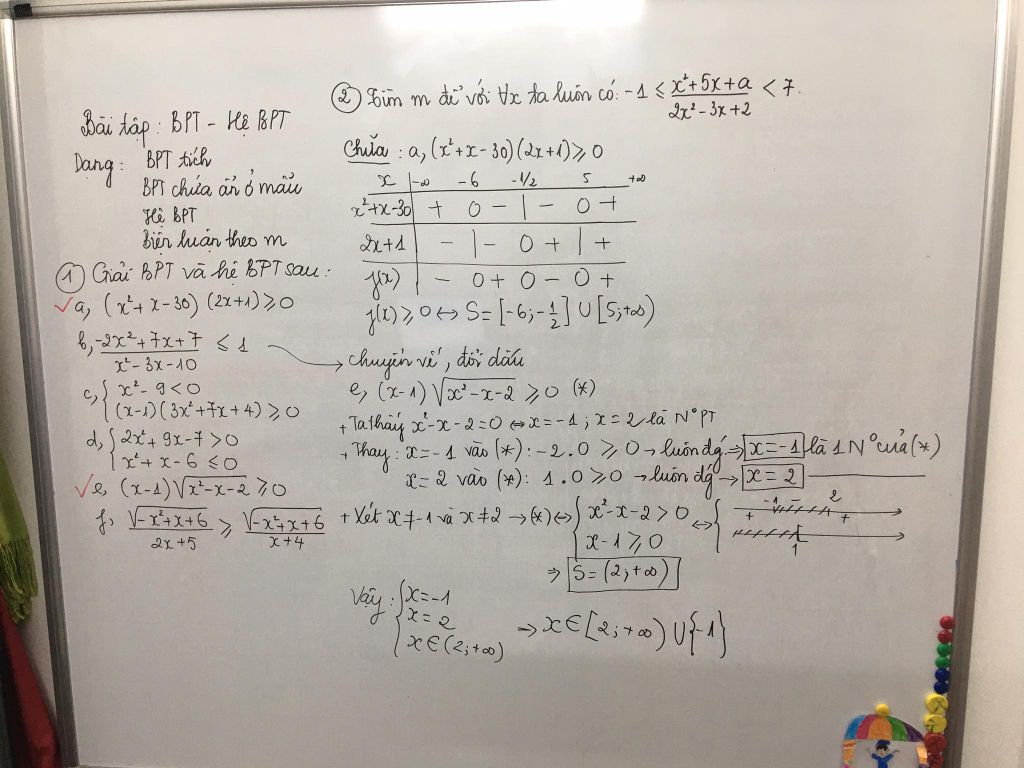 Bài tập: BPT - Hệ BPT
Dạng: BPT tích
BPT chứa ẩn ở mẫu
Hệ BPT
Biện luận theo m
① Giải BPT và hệ BPT sau:
✓ a, (x²+x-30)(2x+1) ⩾ 0
b, (-2x²+7x+7)/(x²-3x-10) ≤ 1
c, { x²-9 < 0
(x-1)(3x²+7x+4) ⩾ 0
d, { 2x²+9x-7 > 0
x²+x-6 ≤ 0
✓ e, (x-1)√(x²-x-2) ⩾ 0
f, √(-x²+x+6)/(2x+5) ⩾ √(-x²+x+6)/(x+4)
② Tìm m để với ∀x ta luôn có: -1 ≤ (x²+5x+a)/(2x²-3x+2) < 7.
Chữa: a, (x²+x-30)(2x+1) ⩾ 0
x | -∞ -6 -1/2 5 +∞
x²+x-30 | + 0 - | - 0 +
2x+1 | - | - 0 + | +
f(x) | - 0 + 0 - 0 +
f(x) ⩾ 0 ⇔ S = [-6; -1/2] ∪ [5; +∞)
→ chuyển vế, đổi dấu
e, (x-1)√(x²-x-2) ⩾ 0 (*)
+ Ta thấy x²-x-2=0 ⇔ x=-1; x=2 là N° PT
+ Thay: x=-1 vào (*): -2.0 ⩾ 0 → luôn đg' ⇒ x=-1 là 1 N° của (*)
x=2 vào (*): 1.0 ⩾ 0 → luôn đg' → x=2 ———
+ Xét x≠-1 và x≠2 → (*) ⇔ { x²-x-2 > 0 ⇔ { -1 2 + - +
x-1 ⩾ 0 1
⇒ S = (2; +∞)
Vậy: { x=-1
x=2
x∈(2; +∞) ⇒ x∈[2; +∞) ∪ {-1}